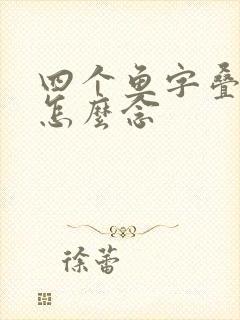 四个鱼字叠
怎麼念
徐蕾